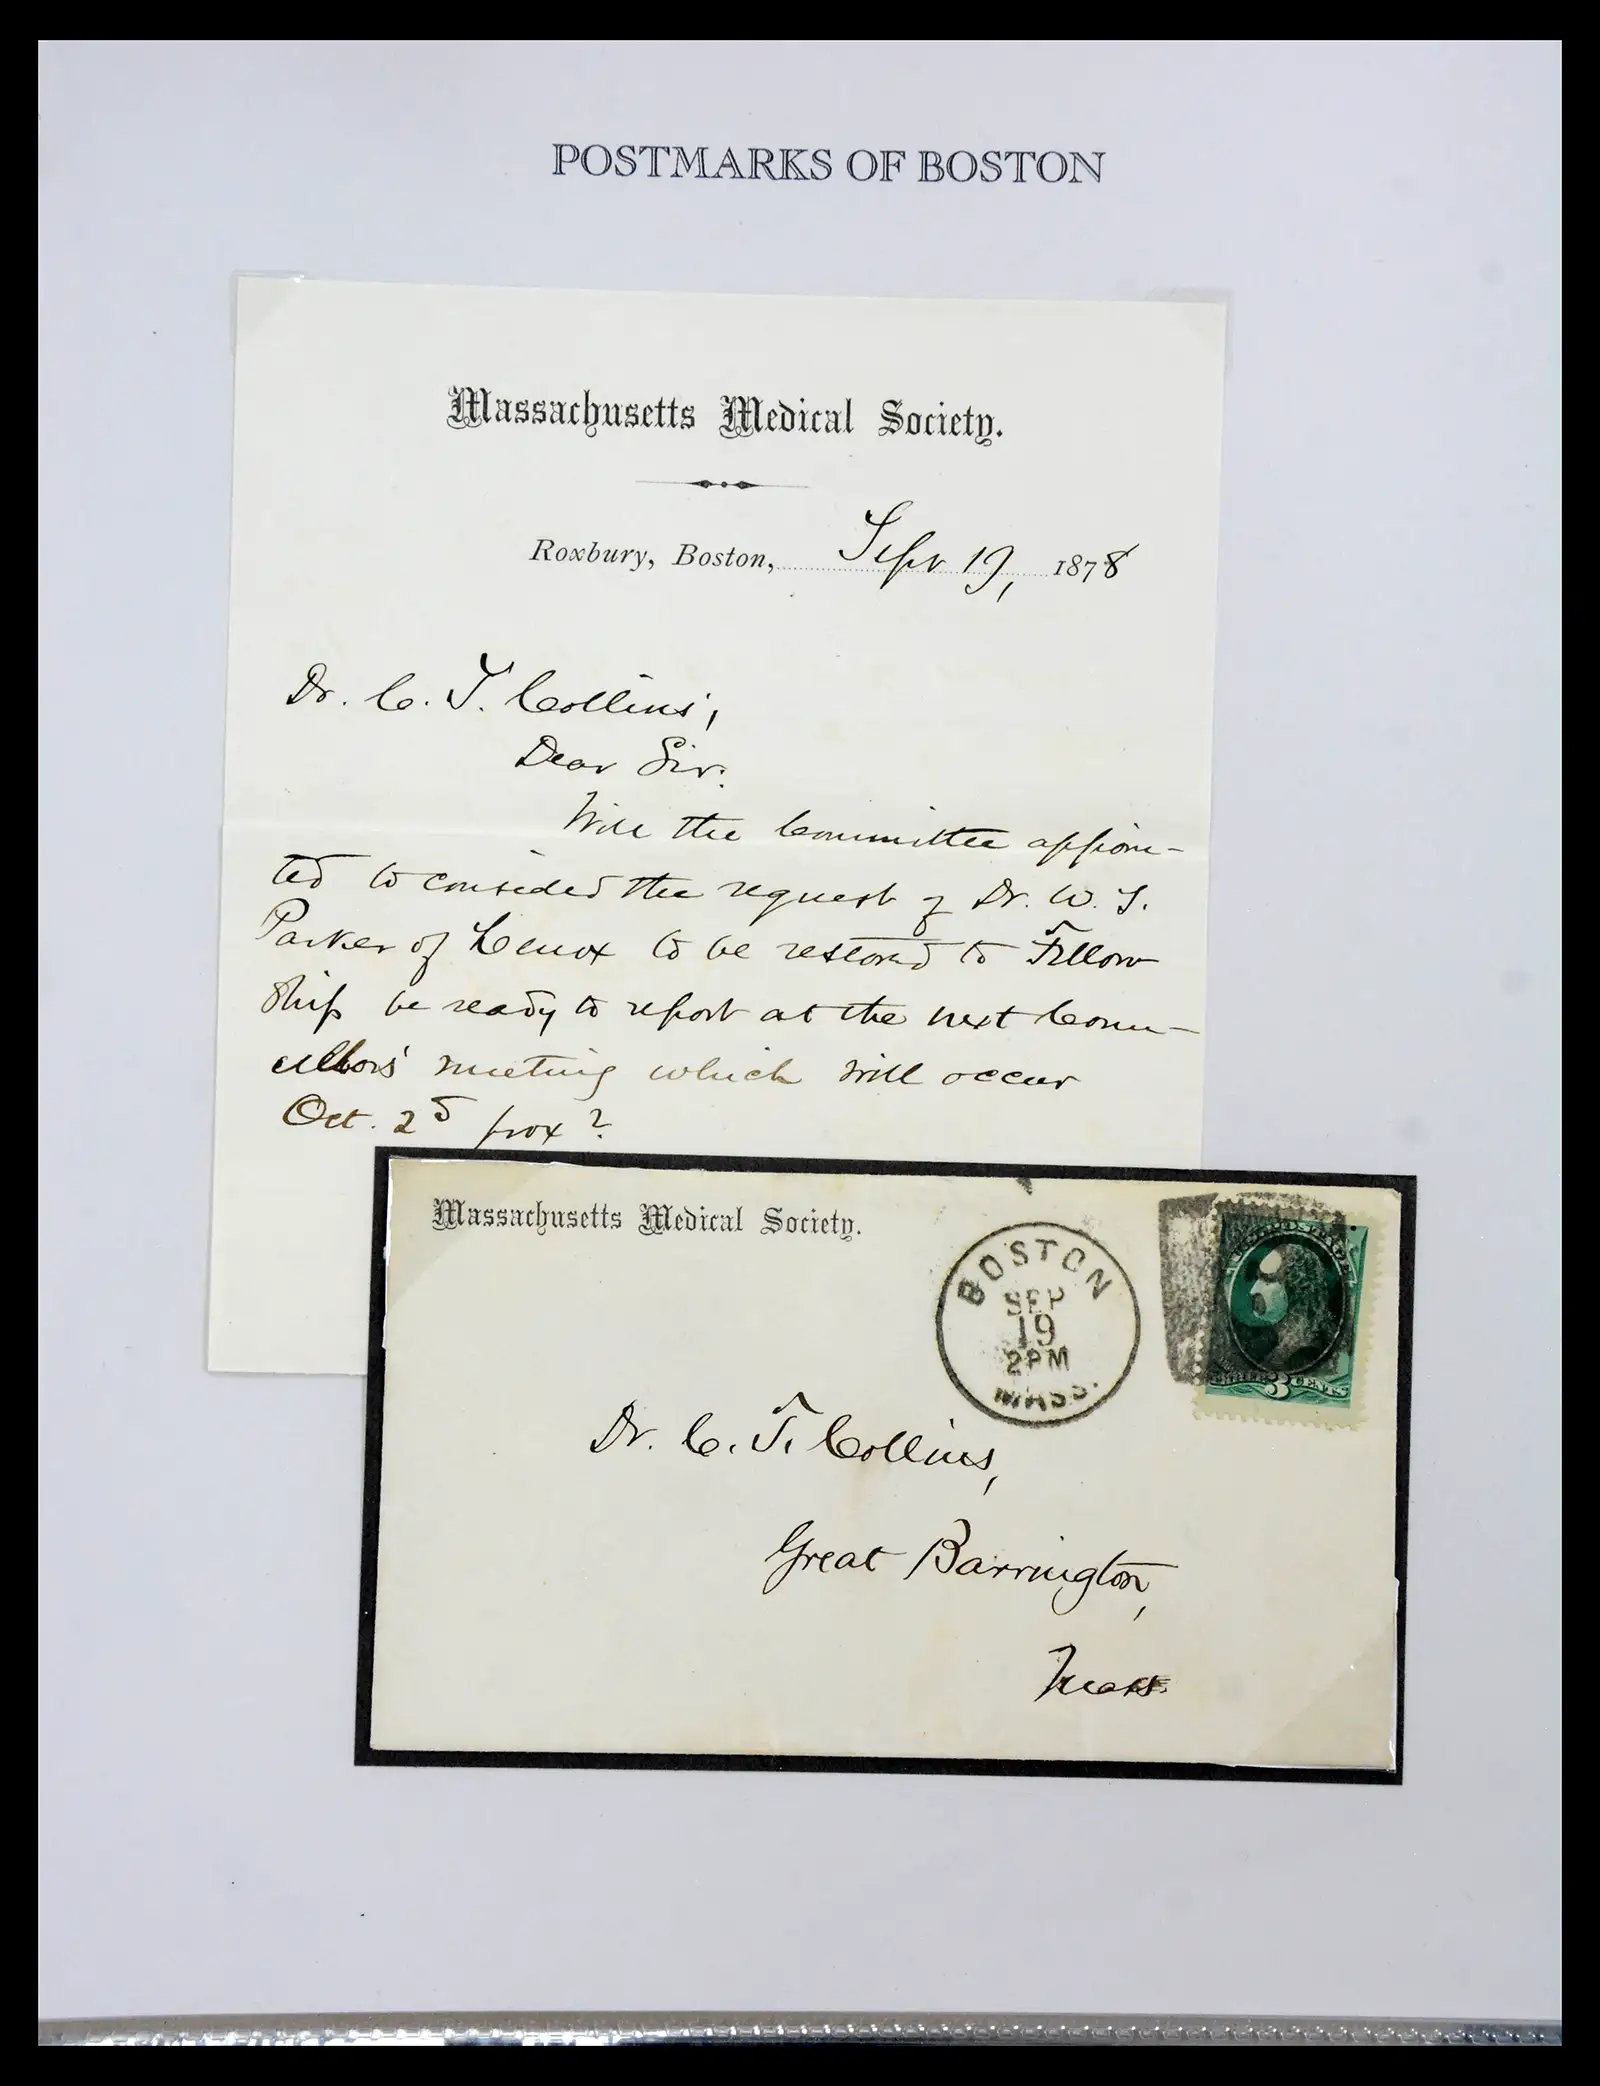 POSTMARKS OF BOSTON
Massachusetts Medical Society.
Roxbury, Boston, Sept 19, 1878
Dr. C. T. Collins,
Dear Sir:
Will the Committee appoin-
ted to consider the request of Dr. W. T.
Parker of Lenox to be restored to Fellow
ship be ready to report at the next Coun-
cillors' meeting which will occur
Oct. 2d prox?
Massachusetts Medical Society.
BOSTON
SEP
19
2PM
MASS.
THREE 3 CENTS
Dr. C. T. Collins,
Great Barrington,
Mass.